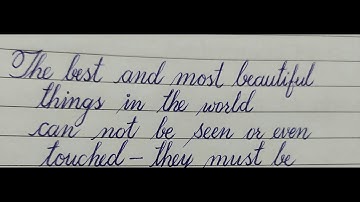 The best and most beautiful
things in the world
can not be seen or even
touched – they must be